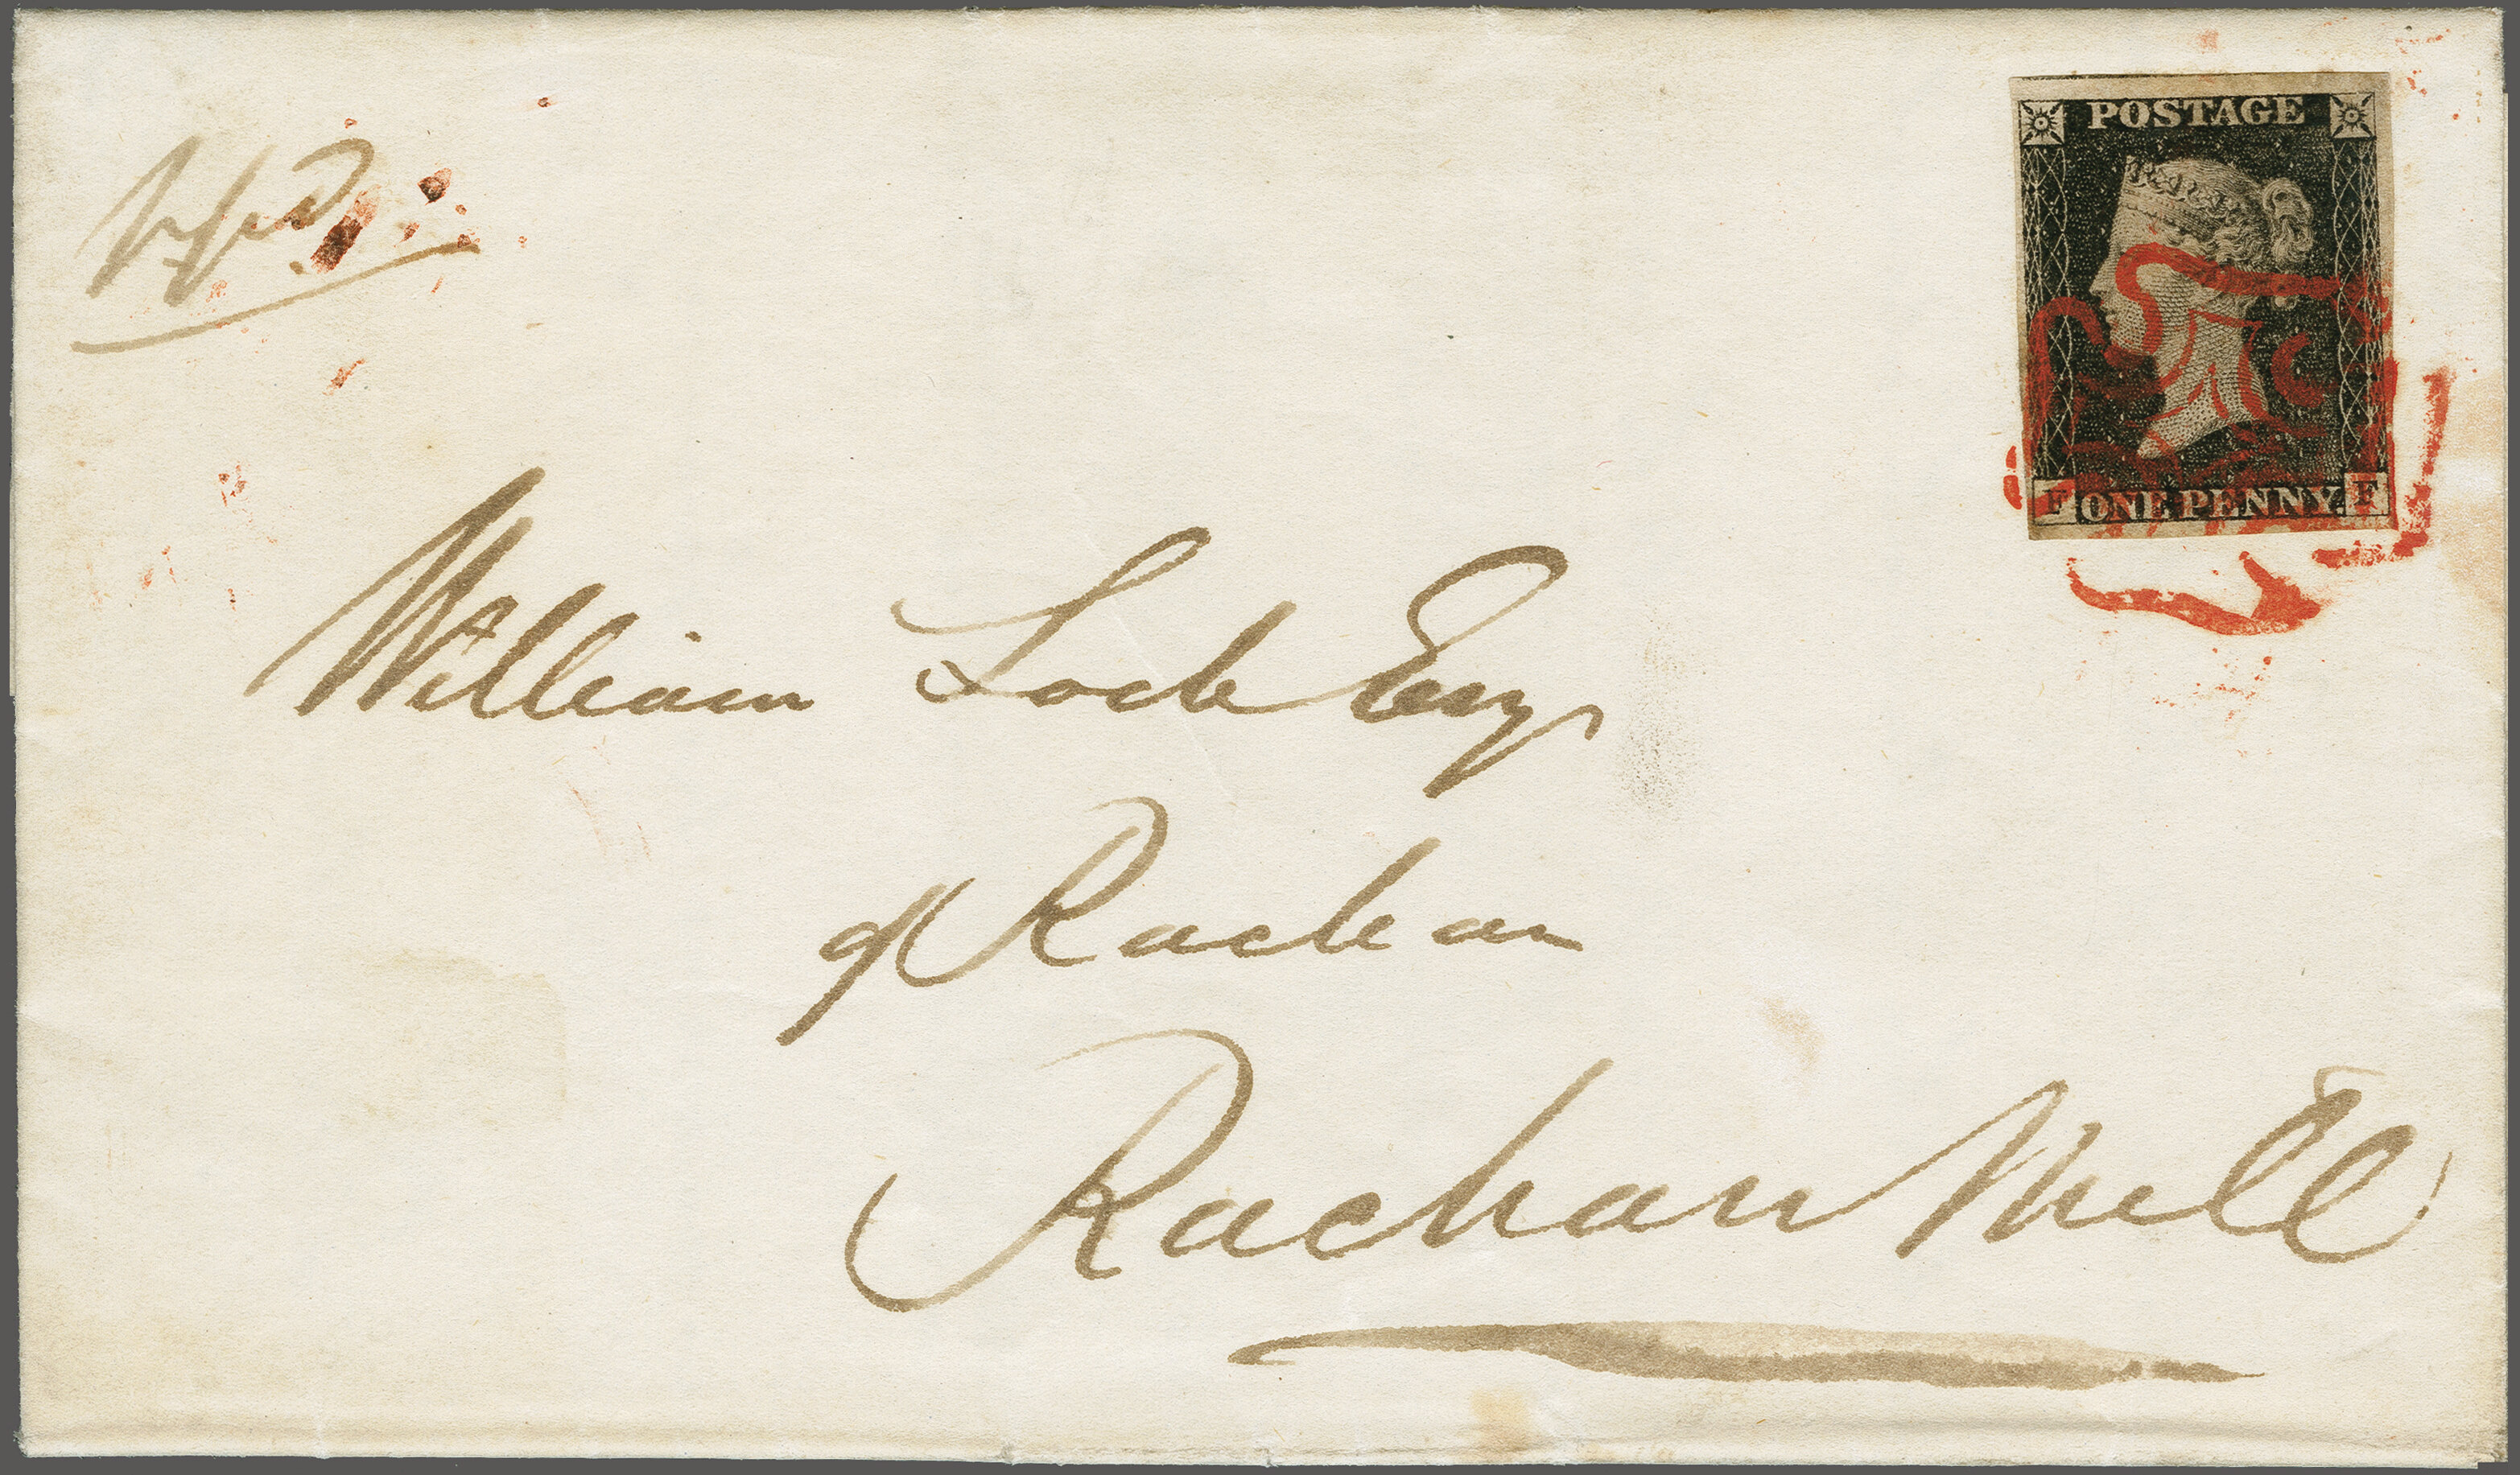 POSTAGE
F ONE PENNY. F
William Loch Esqr
of Rachan
Rachan Mill